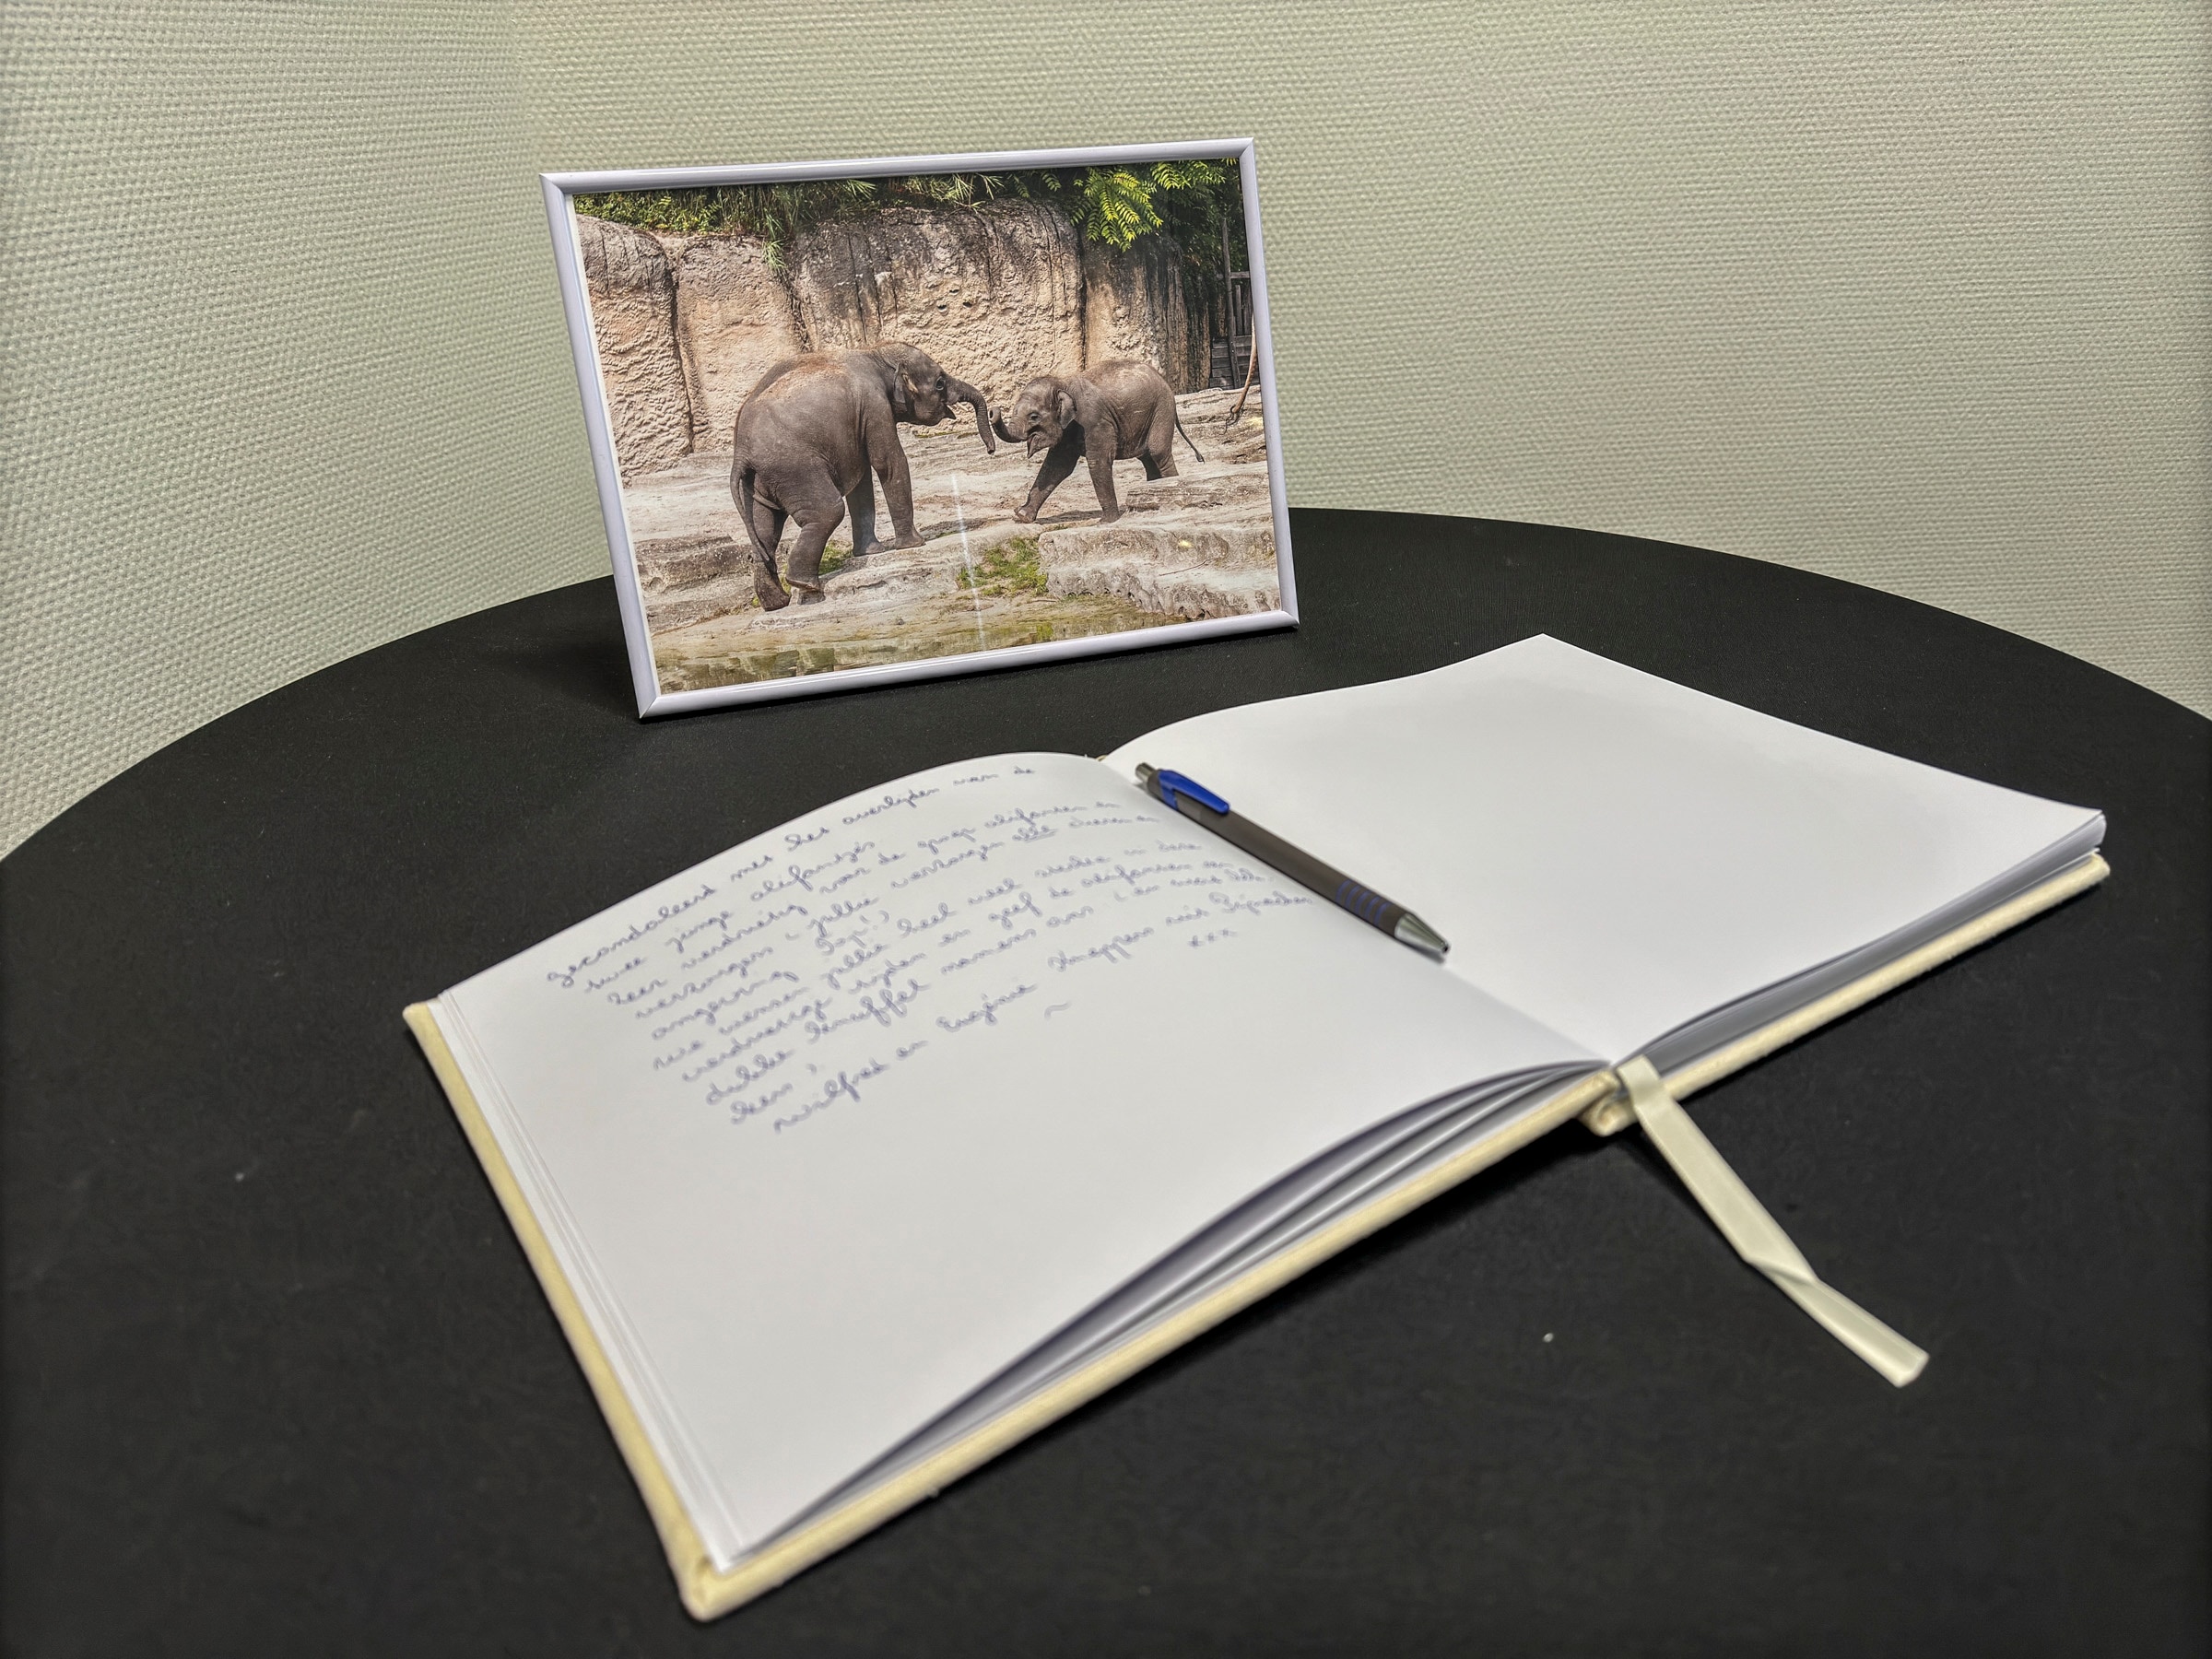 Gecondoleerd met het overlijden van de
twee jonge olifantjes
Zeer verdrietig voor de groep olifanten en
verzorgers, jullie verzorgen alle dieren en
omgeving
we wensen jullie heel veel sterkte in deze
verdrietige tijden en geef de olifanten een
dikke knuffel namens ons
keer,
Wilfred en Eugénie Knappers uit
xxx